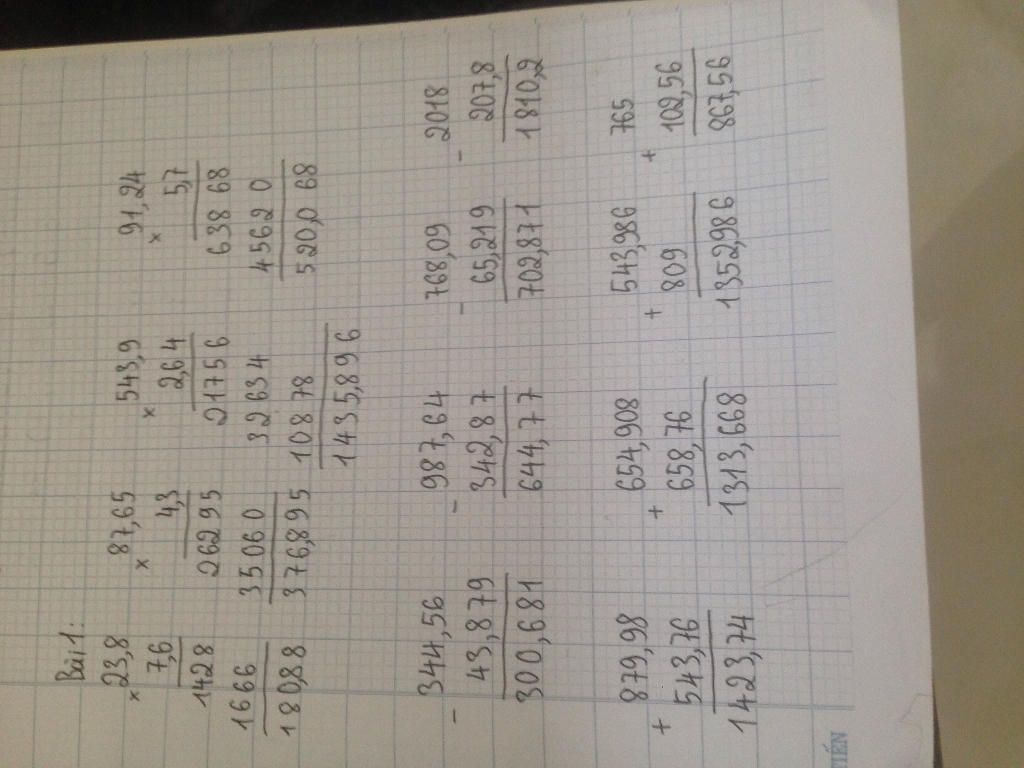 Bài 1:
× 23,8
7,6
1428
1666
180,88
× 87,65
4,3
26295
35060
376,895
× 543,9
2,64
21756
32634
10878
1435,896
× 91,24
5,7
63868
45620
520,068
- 344,56
43,879
300,681
- 987,64
342,87
644,77
- 768,09
65,219
702,871
- 2018
207,8
1810,2
+ 879,98
543,76
1423,74
+ 654,908
658,76
1313,668
+ 543,986
809
1352,986
+ 765
102,56
867,56
TIẾN